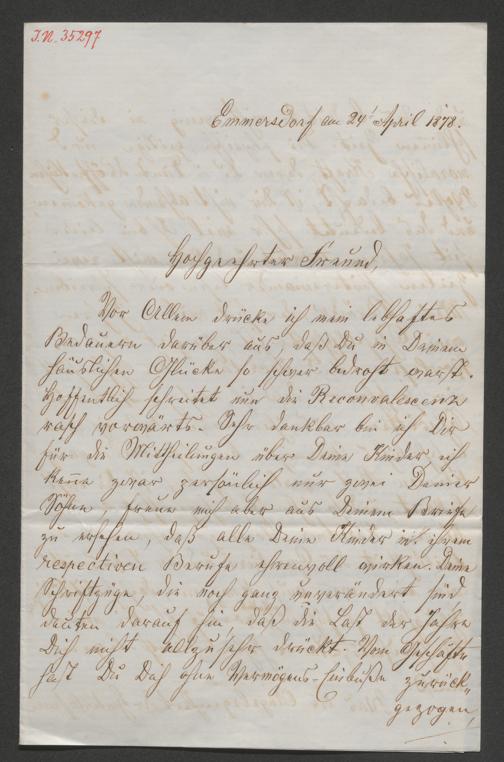 I.N. 35297
Emmersdorf am 24t April 1878.
Hochgeehrter Freund,
Vor Allem drücke ich mein lebhaftes
Bedauern darüber aus, daß Du in Deinem
häuslichen Glücke so schwer bedroht warst.
Hoffentlich schreitet nun die Reconvalescenz
rasch vorwärts. Sehr dankbar bin ich Dir
für die Mittheilungen über Deine Kinder, ich
kenne zwar persönlich nur zwei Deiner
Söhne, freue mich aber aus Deinem Briefe
zu ersehen, daß alle Deine Kinder in ihrem
respectiven Berufe ehrenvoll wirken. Deine
Schriftzüge, die noch ganz unverändert sind
deuten darauf hin, daß die Last der Jahre
Dich nicht allzusehr drückt. Vom Geschäfte
hast Du Dich ohne Vermögens-Einbuße zurück-
gezogen,